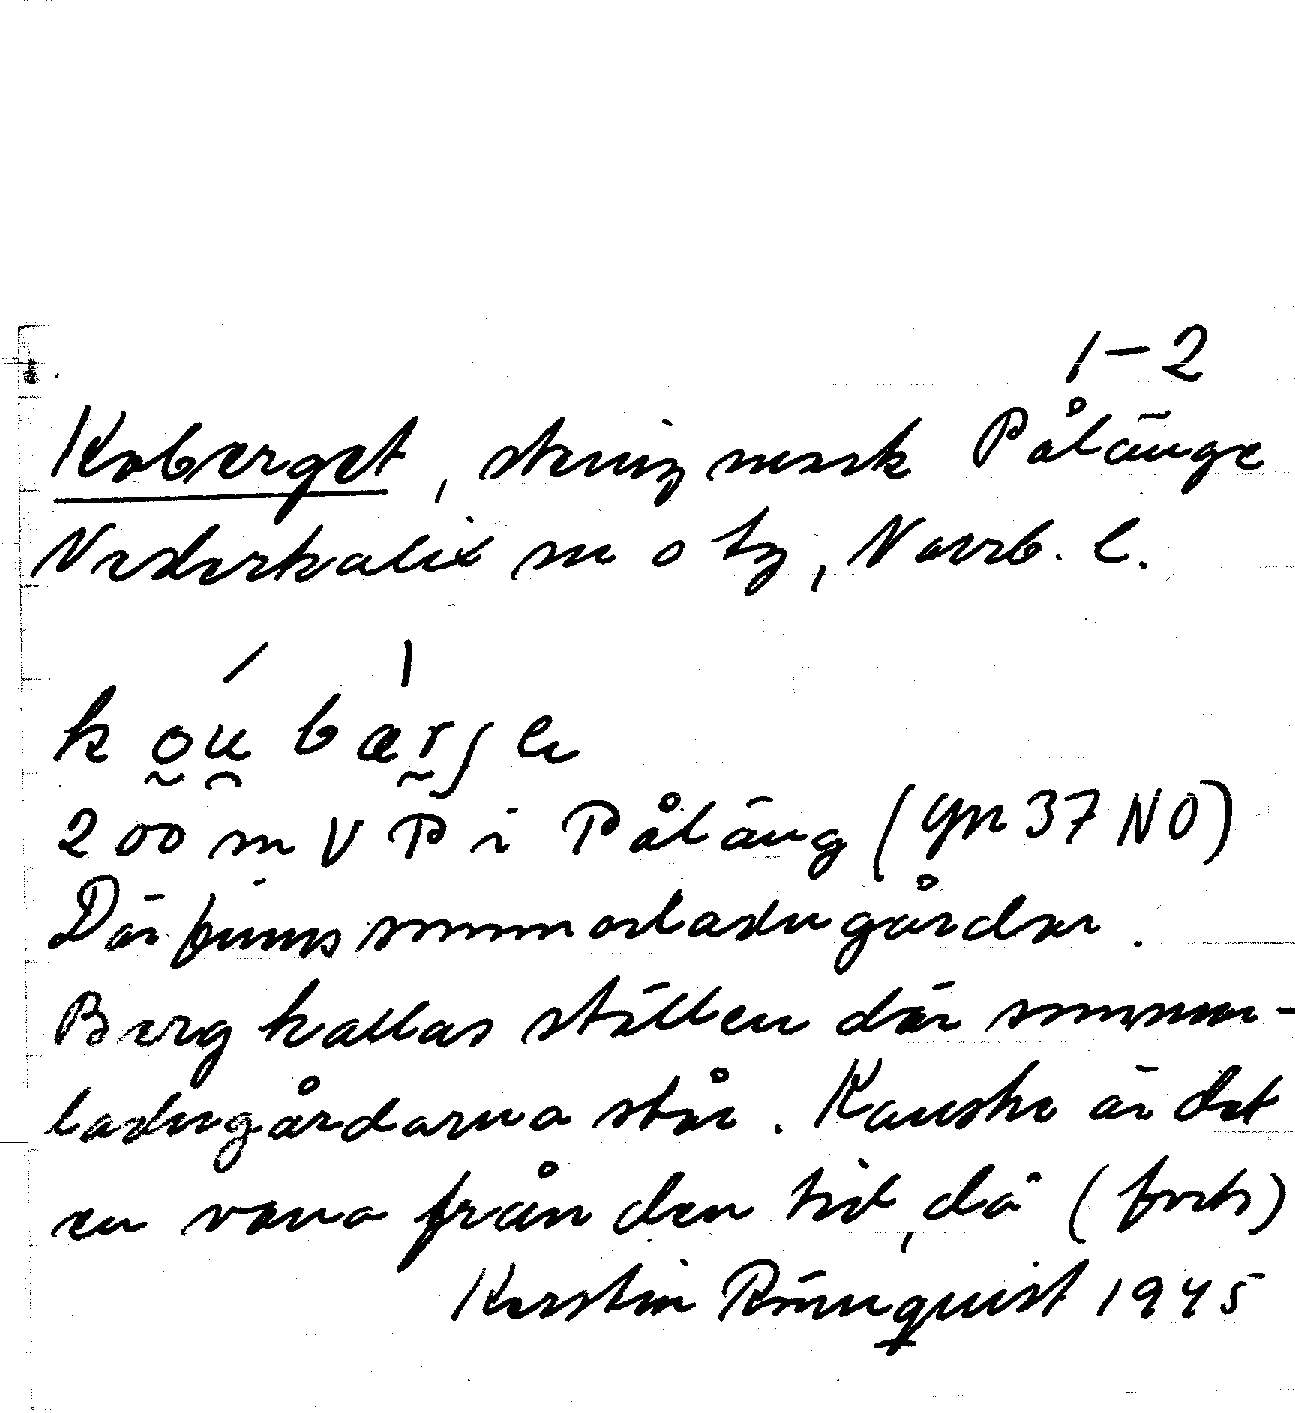 1-2
Koberget, stenig mark Pålänge
Nederkalix sn o tg, Norrb. l.
200 m V P i Påläng (yn 37 NO)
Där finns sommarladugårdar.
Berg kallas ställen där sommar-
ladugårdarna står. Kanske är det
en vana från den tid, då (forts)
Kerstin Rönnquist 1945